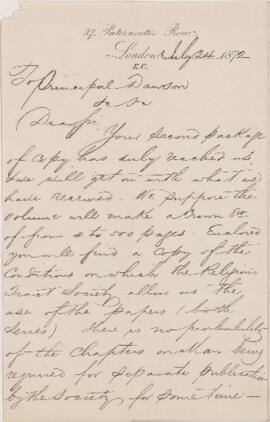 27, Paternoster Row,
London, July 24 1872
E.C.
To Principal Dawson
Dear Sir,
Your second package
of copy has duly reached us,
we shall get on with what we
have received. We suppose the
volume will make a Crown 8vo
of from 4 to 500 pages. Enclosed
you will find a copy of the
Conditions on which the Religious
Tract Society allow us the
use of the papers (both
series). There is no probability
of the Chapters on Man being
required for separate publication
by the Society for some time —